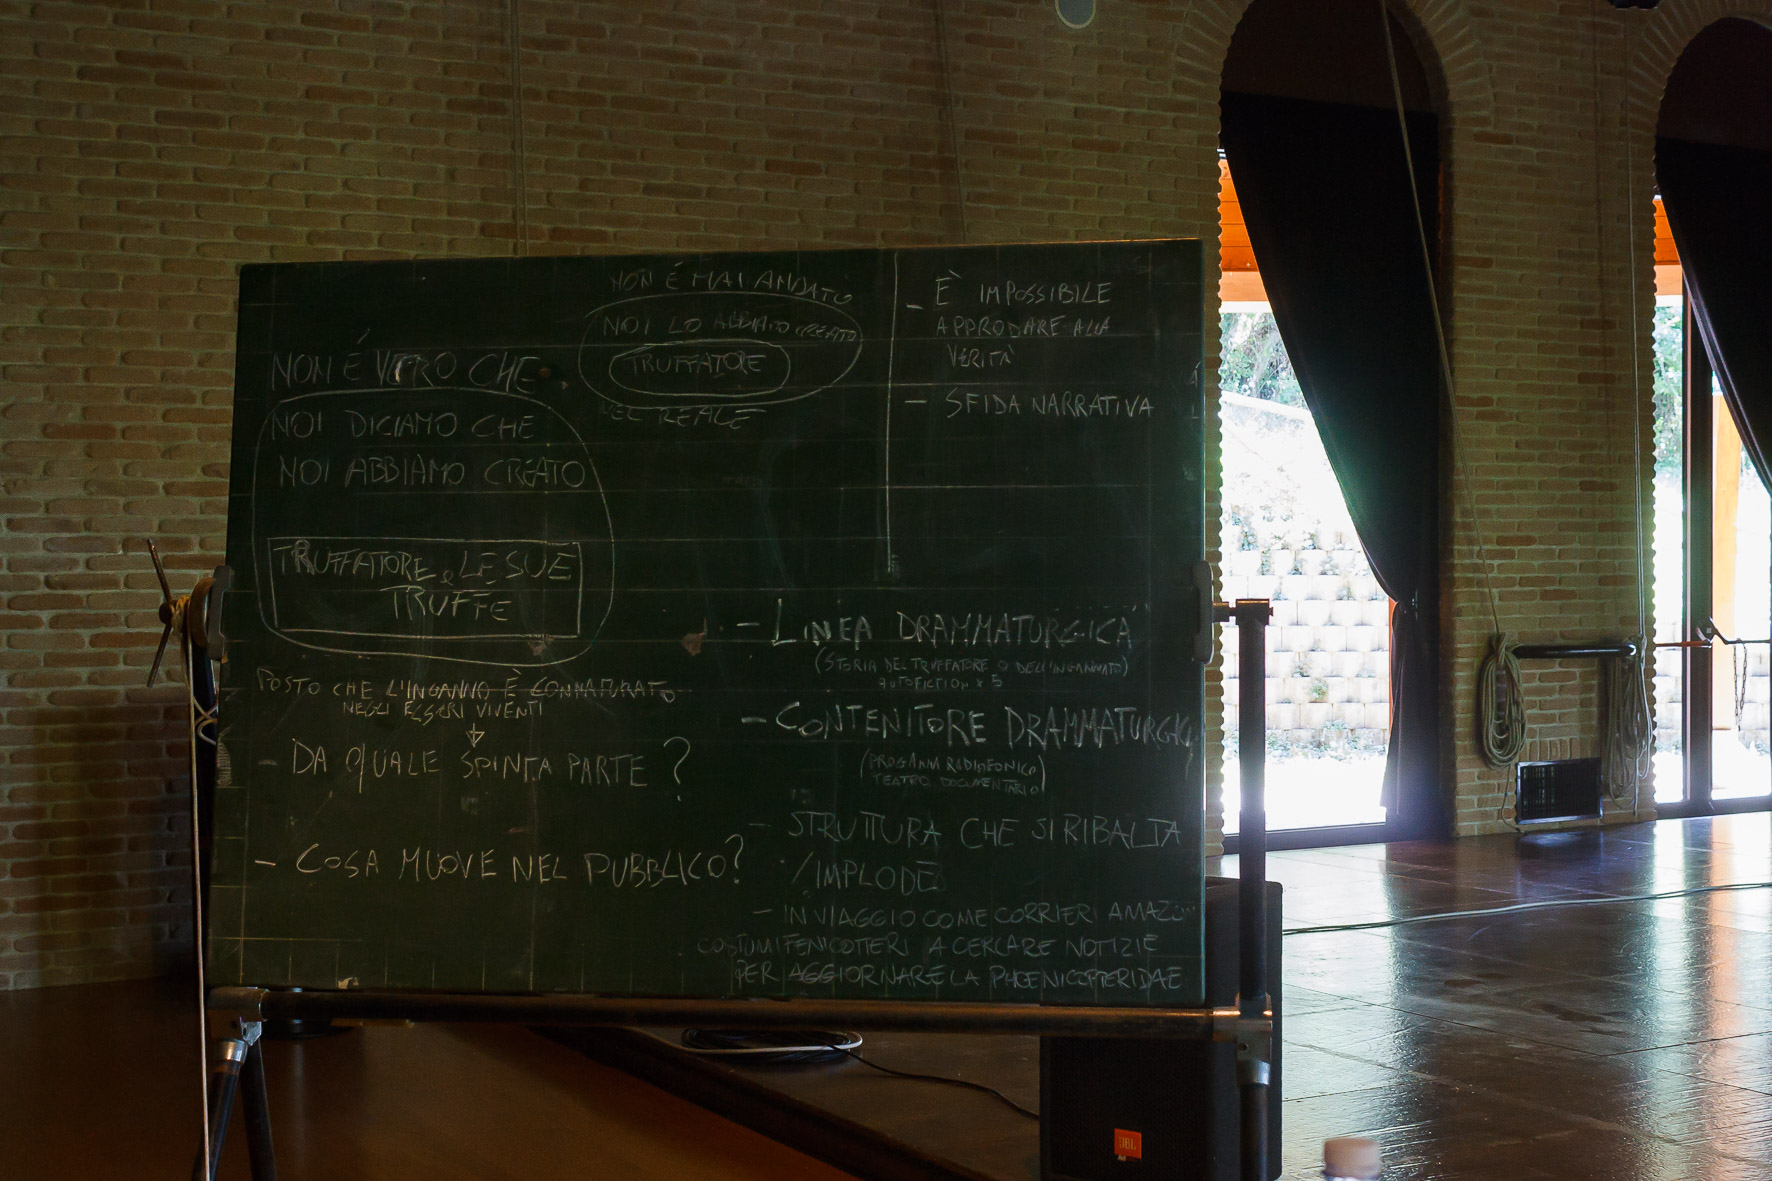 NON È VERO CHE
NOI DICIAMO CHE
NOI ABBIAMO CREATO
TRUFFATORE e LE SUE
TRUFFE
POSTO CHE L'INGANNO È CONNATURATO
NEGLI ESSERI VIVENTI
- DA QUALE SPINTA PARTE?
- COSA MUOVE NEL PUBBLICO?
NON È MAI ANDATO
NOI LO ABBIAMO CREATO
TRUFFATORE
NEL REALE
- È IMPOSSIBILE
APPRODARE ALLA
VERITÀ
- SFIDA NARRATIVA
- LINEA DRAMMATURGICA
(STORIA DEL TRUFFATORE O DELL'INGANNATO)
AUTOFICTION x 5
- CONTENITORE DRAMMATURGICO
(PROGAMMA RADIOFONICO)
TEATRO DOCUMENTARIO
- STRUTTURA CHE SI RIBALTA
/IMPLODE
- IN VIAGGIO COME CORRIERI AMAZON
COSTUMI FENICOTTERI A CERCARE NOTIZIE
PER AGGIORNARE LA PHOENICOPTERIDAE
JBL